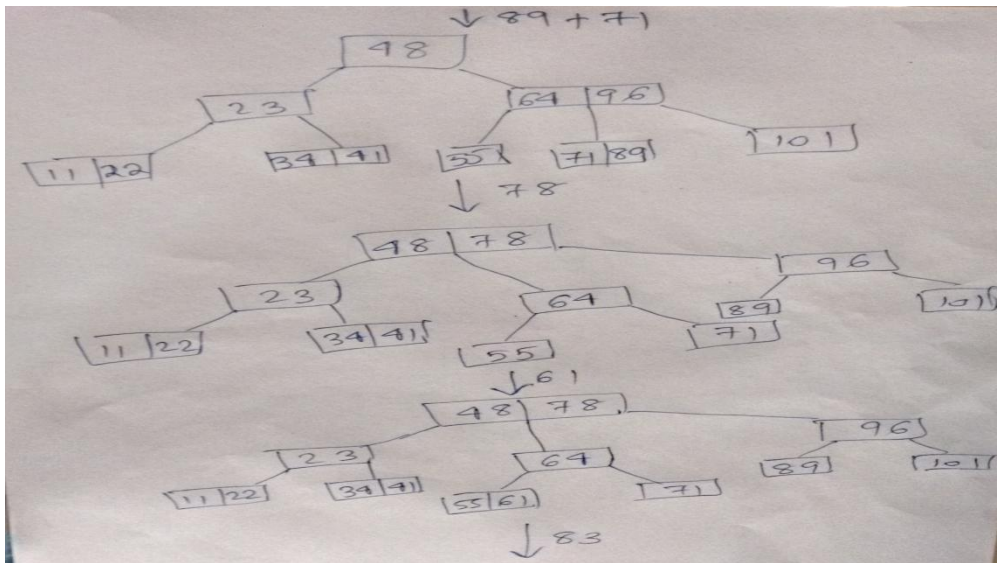 ↓ 89 + 71
48
23 64 96
11 22 34 41 55 71 89 101
↓ 78
48 78
23 64 96
11 22 34 41 55 71 89 101
↓ 61
48 78
23 64 96
11 22 34 41 55 61 71 89 101
↓ 83